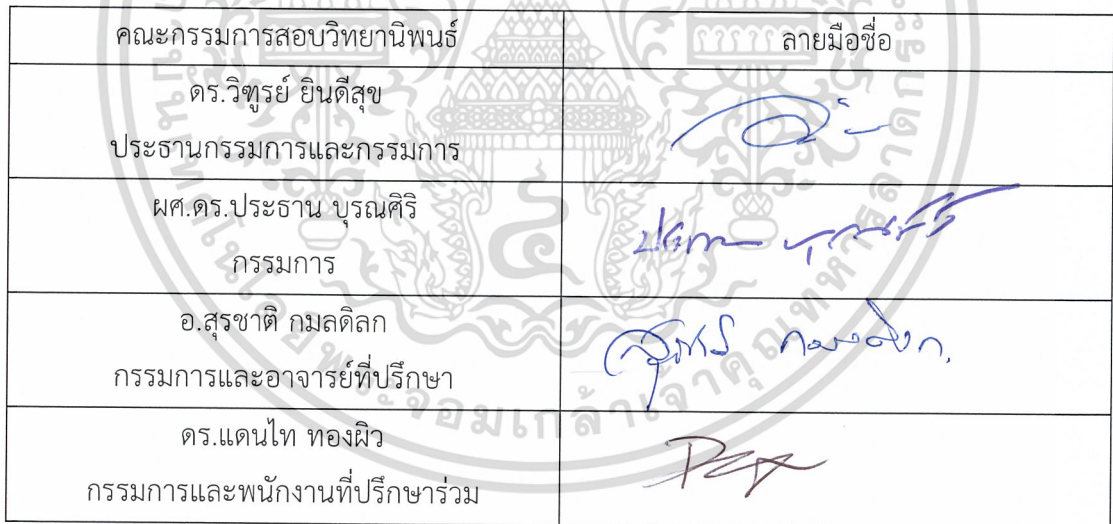 คณะกรรมการสอบวิทยานิพนธ์
ลายมือชื่อ
ดร.วิฑูรย์ ยินดีสุข
ประธานกรรมการและกรรมการ
ผศ.ดร.ประธาน บุรณศิริ
กรรมการ
อ.สุรชาติ กมลดิลก
กรรมการและอาจารย์ที่ปรึกษา
ดร.แดนไท ทองผิว
กรรมการและพนักงานที่ปรึกษาร่วม